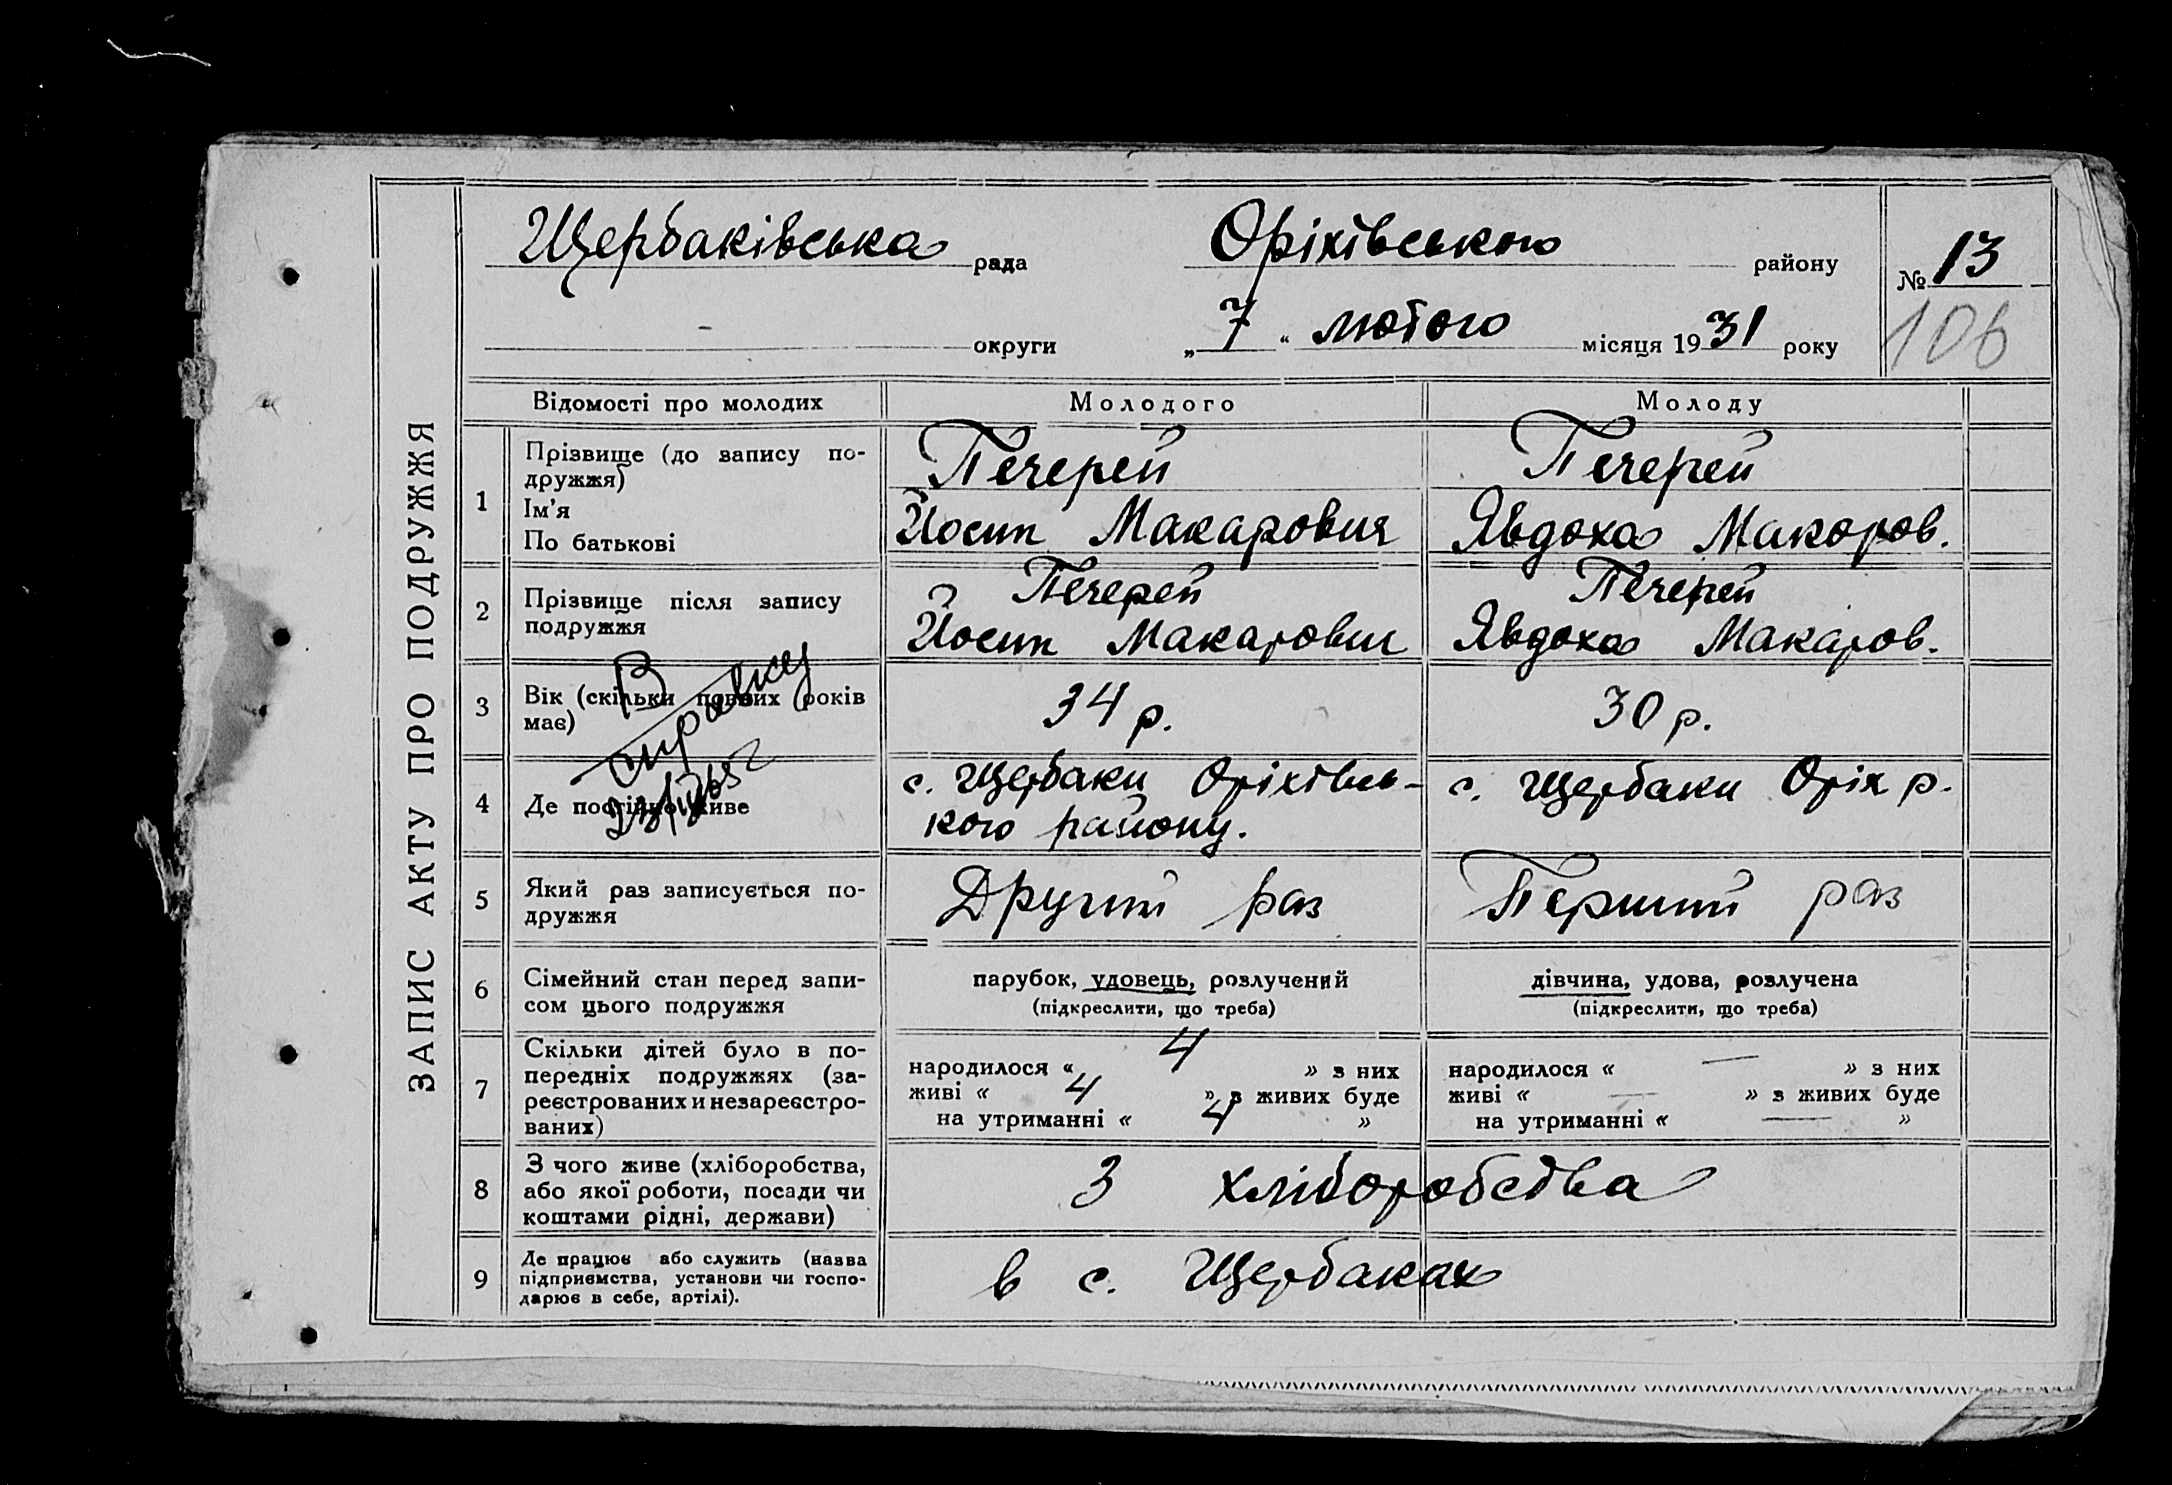 ЗАПИС АКТУ ПРО ПОДРУЖЖЯ
Щербаківська рада Оріхівського району № 13
- округи „7“ лютого місяця 1931 року 106
Відомості про молодих Молодого Молоду
1 Прізвище (до запису по-
дружжя) Печерей Печерей
Ім'я
По батькові Йосип Макарович Явдоха Макаров.
2 Прізвище після запису
подружжя
Печерей Печерей
Йосип Макарович Явдоха Макаров.
3 Вік (скільки повних років
має) 34 р. 30 р.
В
справку
4 Де постійно живе
с. Щербаки Оріхівсь- с. Щербаки Оріх р.
кого району.
5 Який раз записується по-
дружжя Другий раз Перший раз
6 Сімейний стан перед запи-
сом цього подружжя
парубок, удовець, розлучений дівчина, удова, розлучена
(підкреслити, що треба) (підкреслити, що треба)
7 Скільки дітей було в по-
передніх подружжях (за-
реєстрованих и незареєстро-
ваних)
народилося « 4 » з них народилося « — » з них
живі « 4 » з живих буде живі « — » з живих буде
на утриманні « 4 » на утриманні « — »
8 З чого живе (хліборобства,
або якої роботи, посади чи
коштами рідні, держави)
З хліборобства
9 Де працює або служить (назва
підприємства, установи чи госпо-
дарює в себе, артілі).
в с. Щербаках